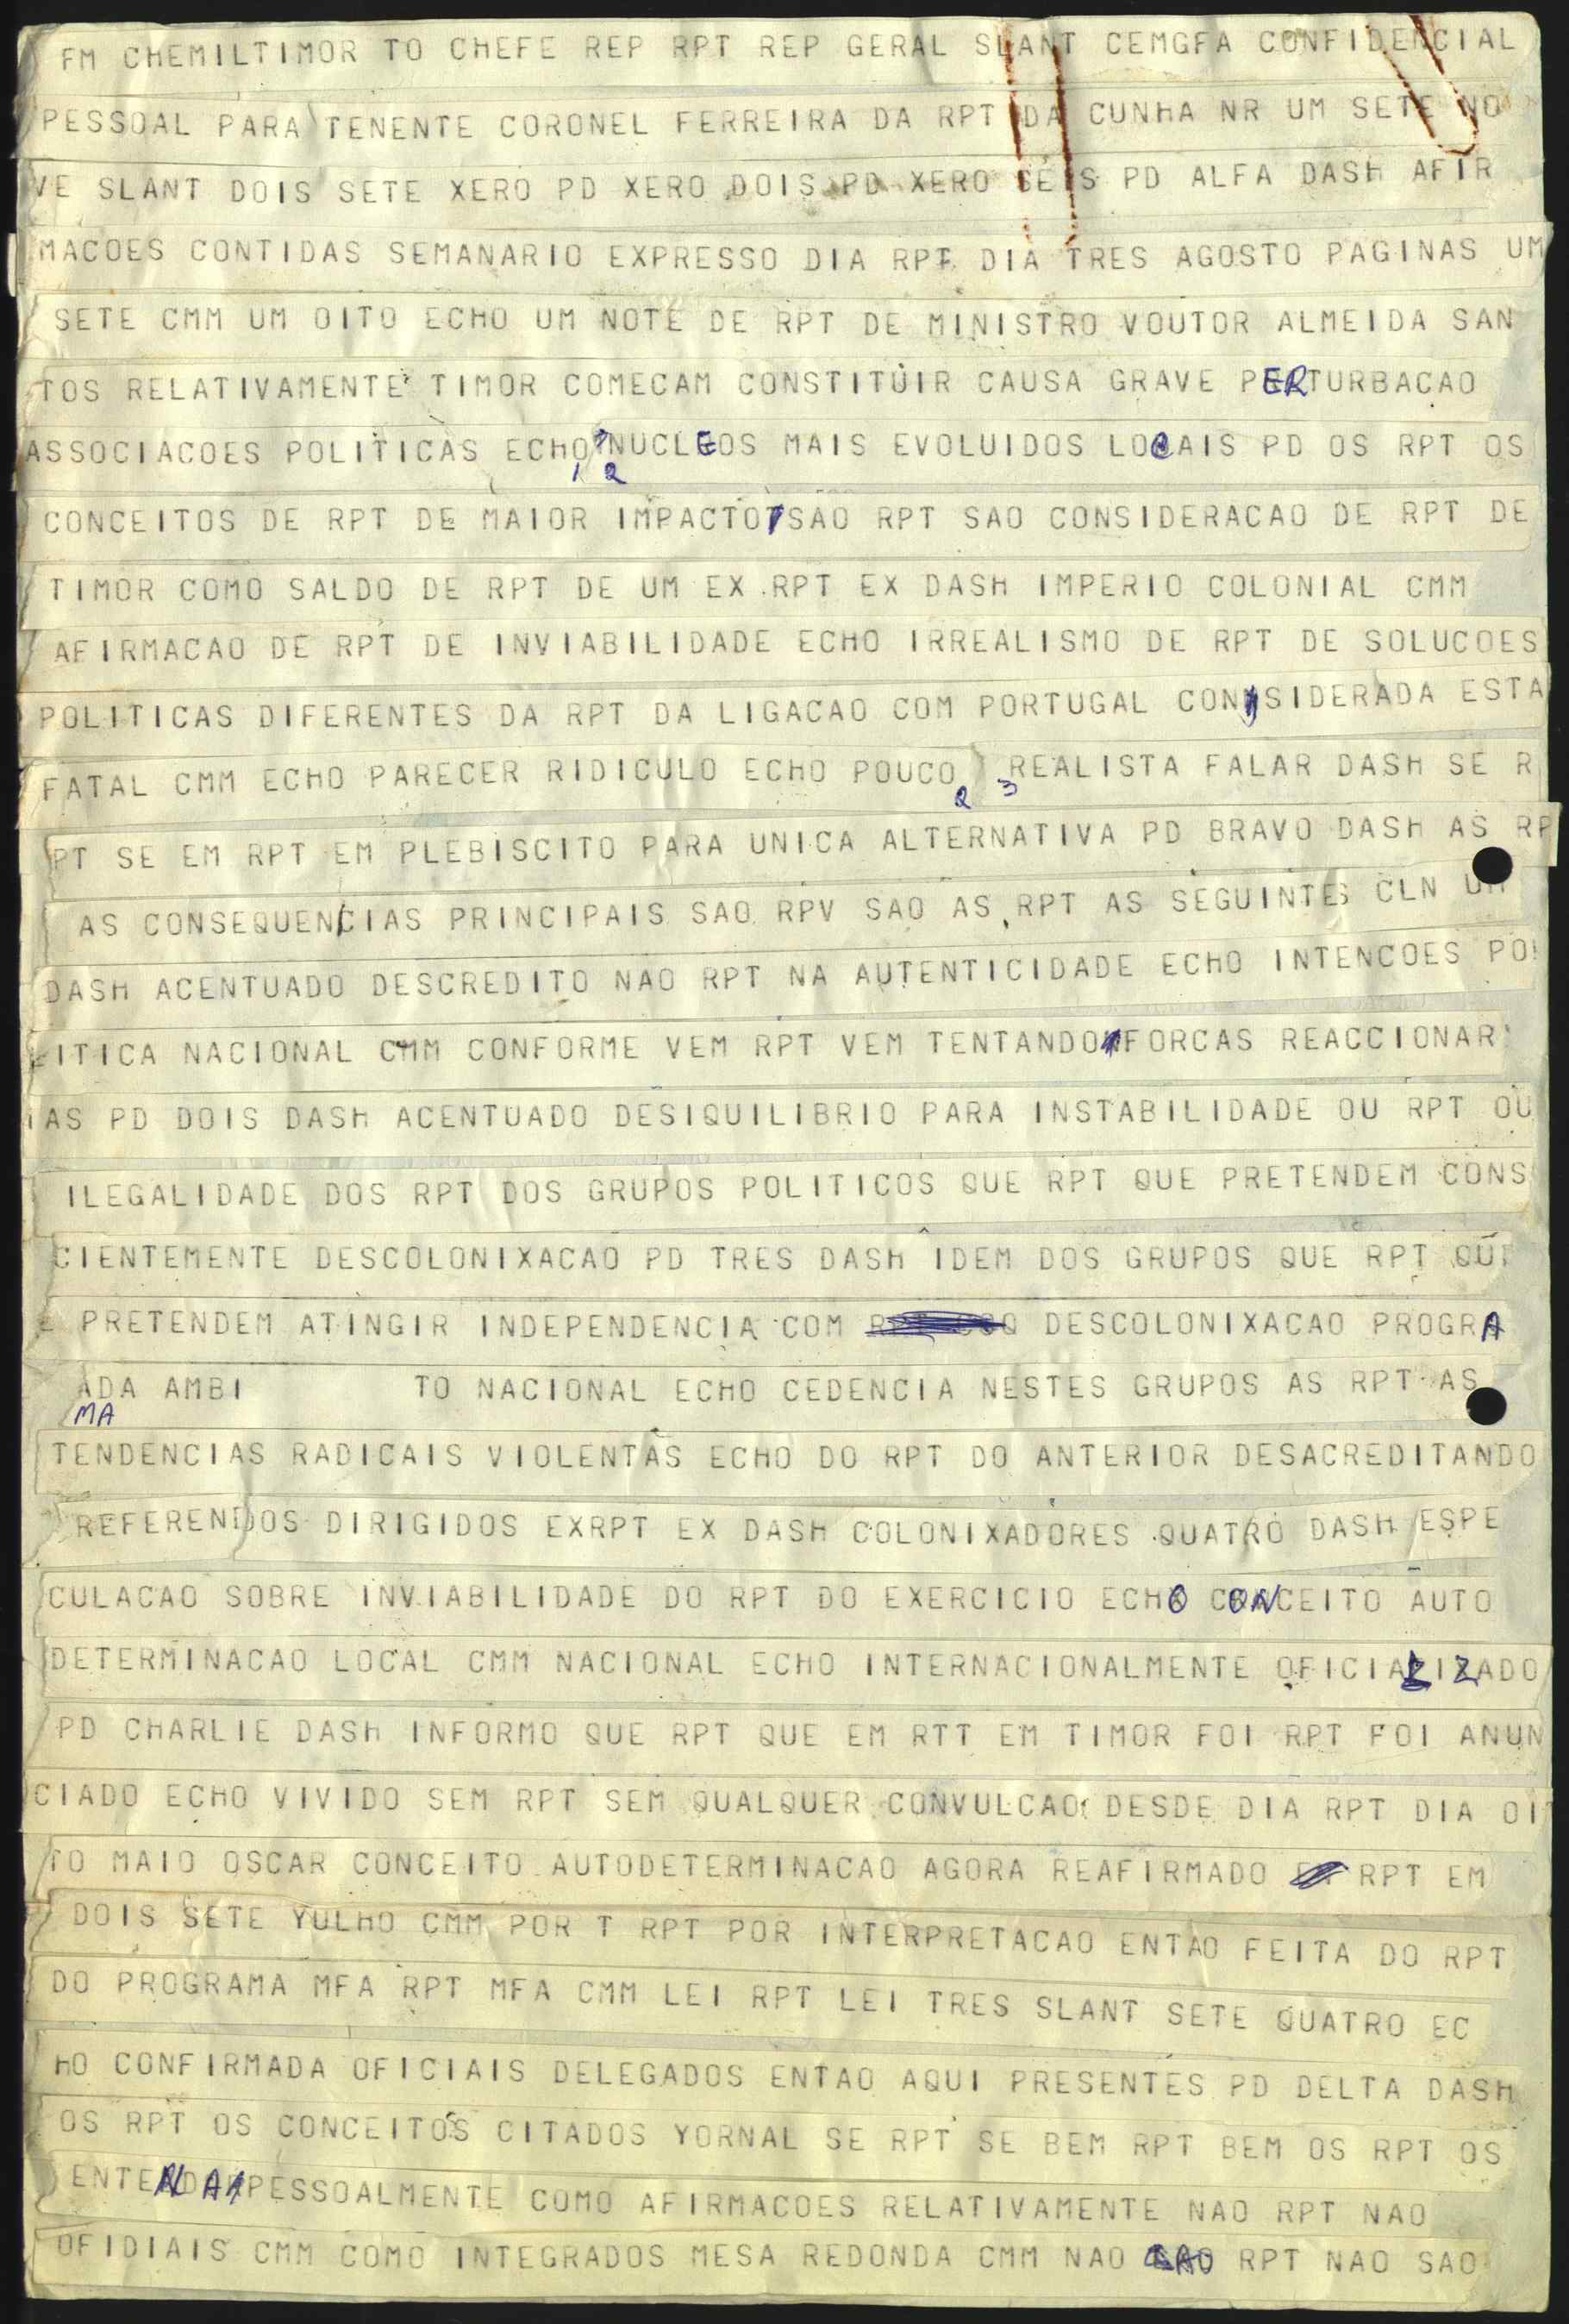 FM CHEMILTIMOR TO CHEFE REP RPT REP GERAL SLANT CEMGFA CONFIDENCIAL
PESSOAL PARA TENENTE CORONEL FERREIRA DA RPT DA CUNHA NR UM SETE NO
VE SLANT DOIS SETE XERO PD XERO DOIS PD XERO SEIS PD ALFA DASH AFIR
MACOES CONTIDAS SEMANARIO EXPRESSO DIA RPT DIA TRES AGOSTO PAGINAS UM
SETE CMM UM OITO ECHO UM NOTE DE RPT DE MINISTRO VOUTOR ALMEIDA SAN
TOS RELATIVAMENTE TIMOR COMECAM CONSTITUIR CAUSA GRAVE PERTURBACAO
ASSOCIACOES POLITICAS ECHO NUCLEOS MAIS EVOLUIDOS LOCAIS PD OS RPT OS
1 2
CONCEITOS DE RPT DE MAIOR IMPACTO SAO RPT SAO CONSIDERACAO DE RPT DE
TIMOR COMO SALDO DE RPT DE UM EX RPT EX DASH IMPERIO COLONIAL CMM
AFIRMACAO DE RPT DE INVIABILIDADE ECHO IRREALISMO DE RPT DE SOLUCOES
POLITICAS DIFERENTES DA RPT DA LIGACAO COM PORTUGAL CONSIDERADA ESTA
FATAL CMM ECHO PARECER RIDICULO ECHO POUCO REALISTA FALAR DASH SE R
2 3
PT SE EM RPT EM PLEBISCITO PARA UNICA ALTERNATIVA PD BRAVO DASH AS RP
AS CONSEQUENCIAS PRINCIPAIS SAO RPV SAO AS RPT AS SEGUINTES CLN UM
DASH ACENTUADO DESCREDITO NAO RPT NA AUTENTICIDADE ECHO INTENCOES PO
LITICA NACIONAL CMM CONFORME VEM RPT VEM TENTANDO FORCAS REACCIONAR
IAS PD DOIS DASH ACENTUADO DESIQUILIBRIO PARA INSTABILIDADE OU RPT OU
ILEGALIDADE DOS RPT DOS GRUPOS POLITICOS QUE RPT QUE PRETENDEM CONS
CIENTEMENTE DESCOLONIXACAO PD TRES DASH IDEM DOS GRUPOS QUE RPT QU
E PRETENDEM ATINGIR INDEPENDENCIA COM DESCOLONIXACAO PROGRA
ADA AMBI TO NACIONAL ECHO CEDENCIA NESTES GRUPOS AS RPT AS
MA
TENDENCIAS RADICAIS VIOLENTAS ECHO DO RPT DO ANTERIOR DESACREDITANDO
REFERENDOS DIRIGIDOS EXRPT EX DASH COLONIXADORES QUATRO DASH ESPE
CULACAO SOBRE INVIABILIDADE DO RPT DO EXERCICIO ECHO CONCEITO AUTO
DETERMINACAO LOCAL CMM NACIONAL ECHO INTERNACIONALMENTE OFICIALIZADO
PD CHARLIE DASH INFORMO QUE RPT QUE EM RTT EM TIMOR FOI RPT FOI ANUN
CIADO ECHO VIVIDO SEM RPT SEM QUALQUER CONVULCAO DESDE DIA RPT DIA OI
TO MAIO OSCAR CONCEITO AUTODETERMINACAO AGORA REAFIRMADO RPT EM
DOIS SETE YULHO CMM POR T RPT POR INTERPRETACAO ENTAO FEITA DO RPT
DO PROGRAMA MFA RPT MFA CMM LEI RPT LEI TRES SLANT SETE QUATRO EC
HO CONFIRMADA OFICIAIS DELEGADOS ENTAO AQUI PRESENTES PD DELTA DASH
OS RPT OS CONCEITOS CITADOS YORNAL SE RPT SE BEM RPT BEM OS RPT OS
ENTENDA PESSOALMENTE COMO AFIRMACOES RELATIVAMENTE NAO RPT NAO
OFIDIAIS CMM COMO INTEGRADOS MESA REDONDA CMM NAO SAO RPT NAO SAO